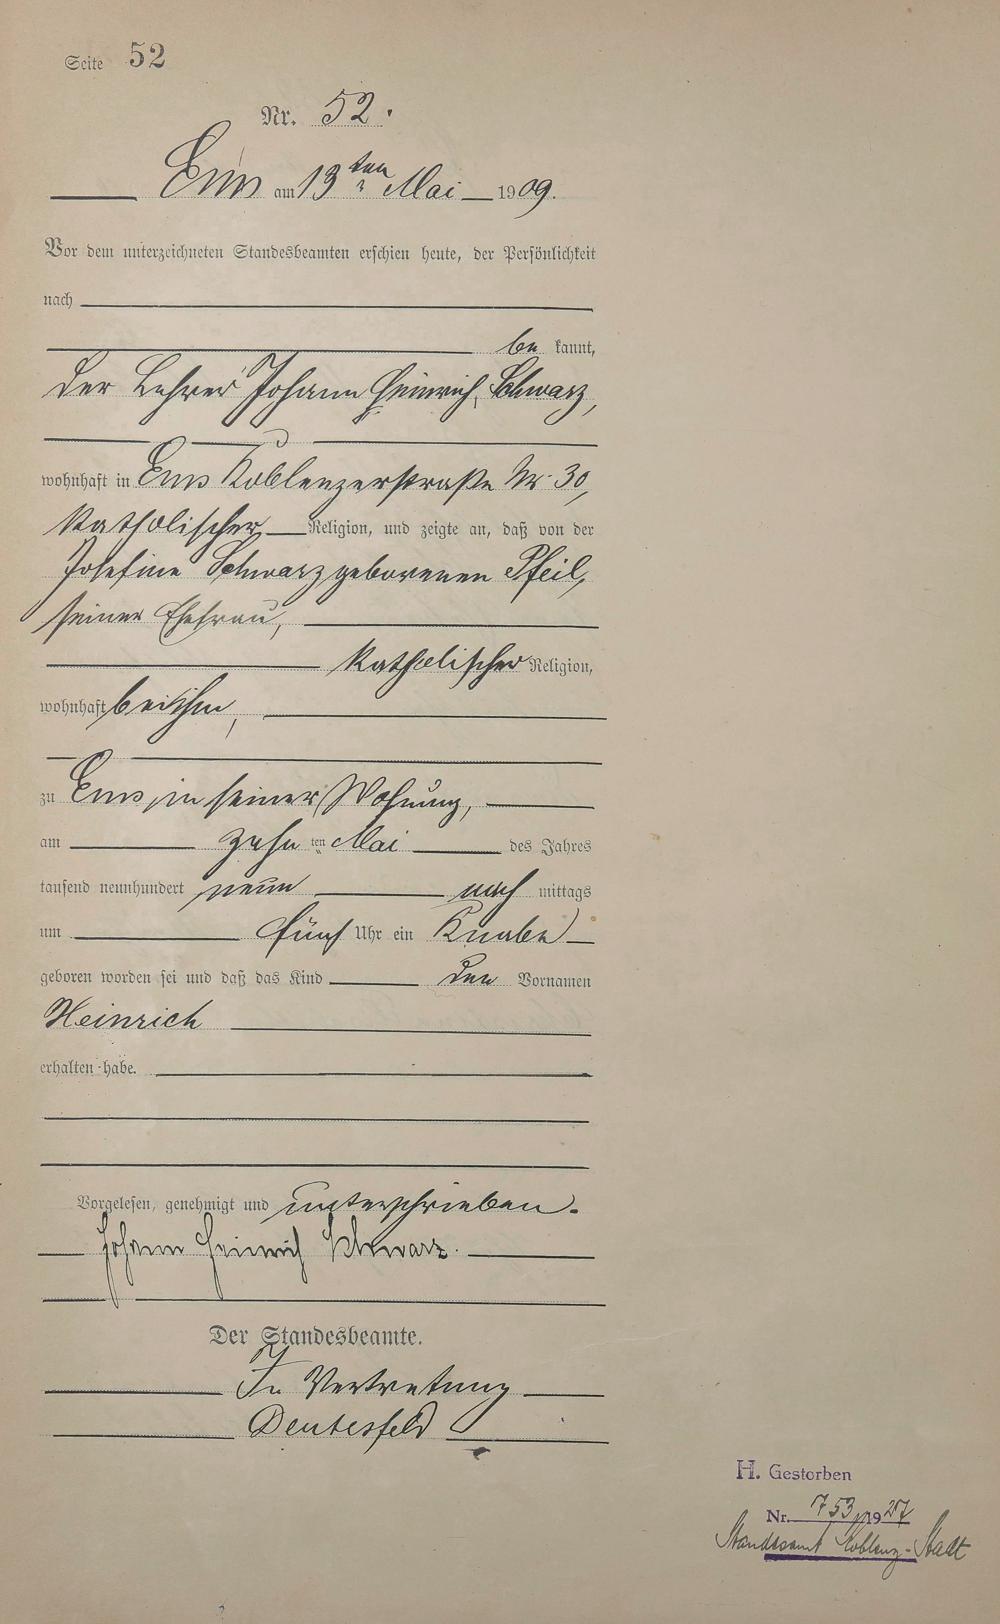 Seite 52
Nr. 52.
Ems am 13ten Mai 1909.
Vor dem unterzeichneten Standesbeamten erschien heute, der Persönlichkeit
nach
be kannt,
der Lehrer Johann Heinrich Schwarz,
wohnhaft in Ems Koblenzerstraße Nr. 30,
katholischer Religion, und zeigte an, daß von der
Josefine Schwarz geborenen Pfeil,
seiner Ehefrau,
katholischer Religion,
wohnhaft bei ihm,
zu Ems, in seiner Wohnung,
am zehn ten Mai des Jahres
tausend neunhundert neun nach mittags
um fünf Uhr ein Knabe
geboren worden sei und daß das Kind den Vornamen
Heinrich
erhalten habe.
Vorgelesen, genehmigt und unterschrieben.
Johann Heinrich Schwarz.
Der Standesbeamte.
In Vertretung
Deutesfeld
H. Gestorben
Nr. 753/1927
Standesamt Koblenz-Stadt